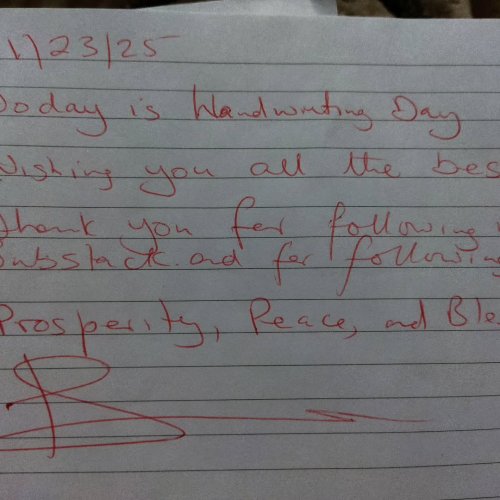 1/23/25
Today is Handwriting Day
Wishing you all the bes
Thank you for following
Substack and for following
Prosperity, Peace, and Ble